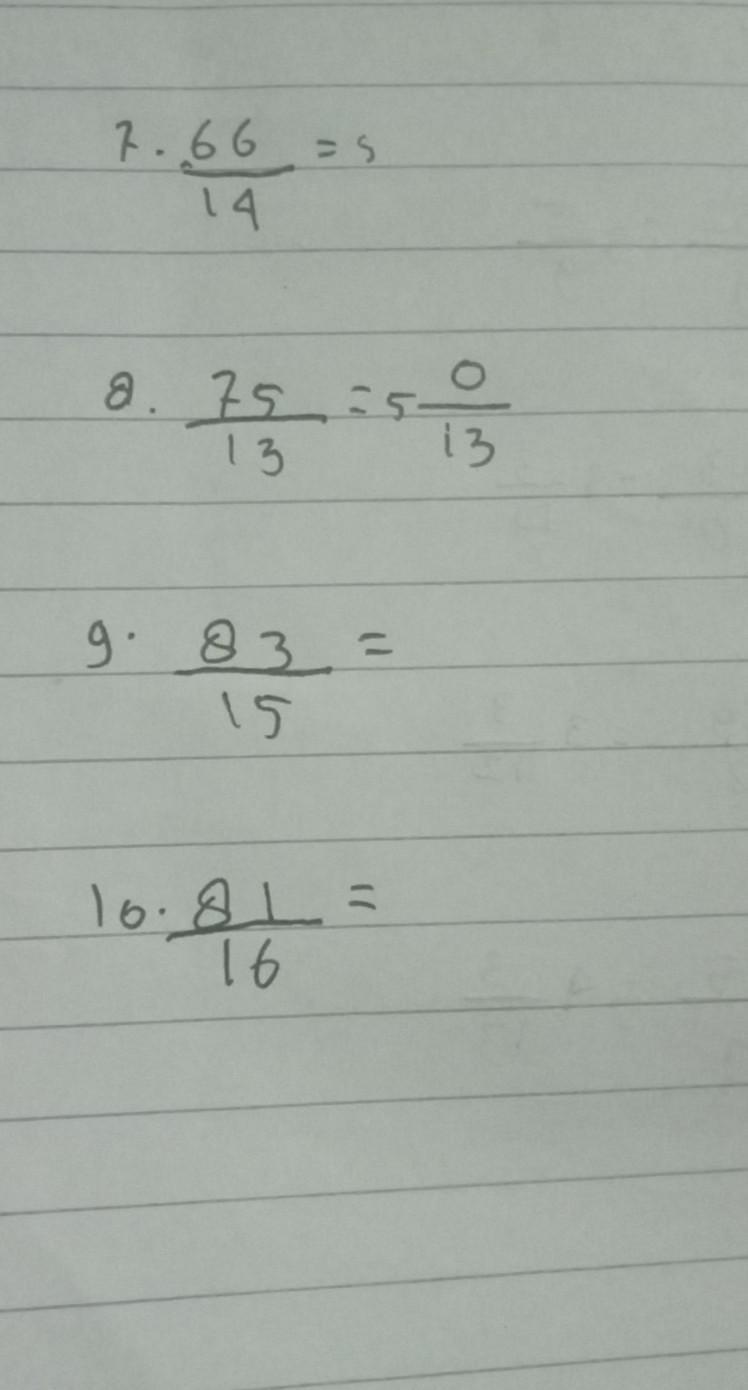 7. 66/14 = 5
8. 75/13 = 5 0/13
9. 83/15 =
10. 81/16 =